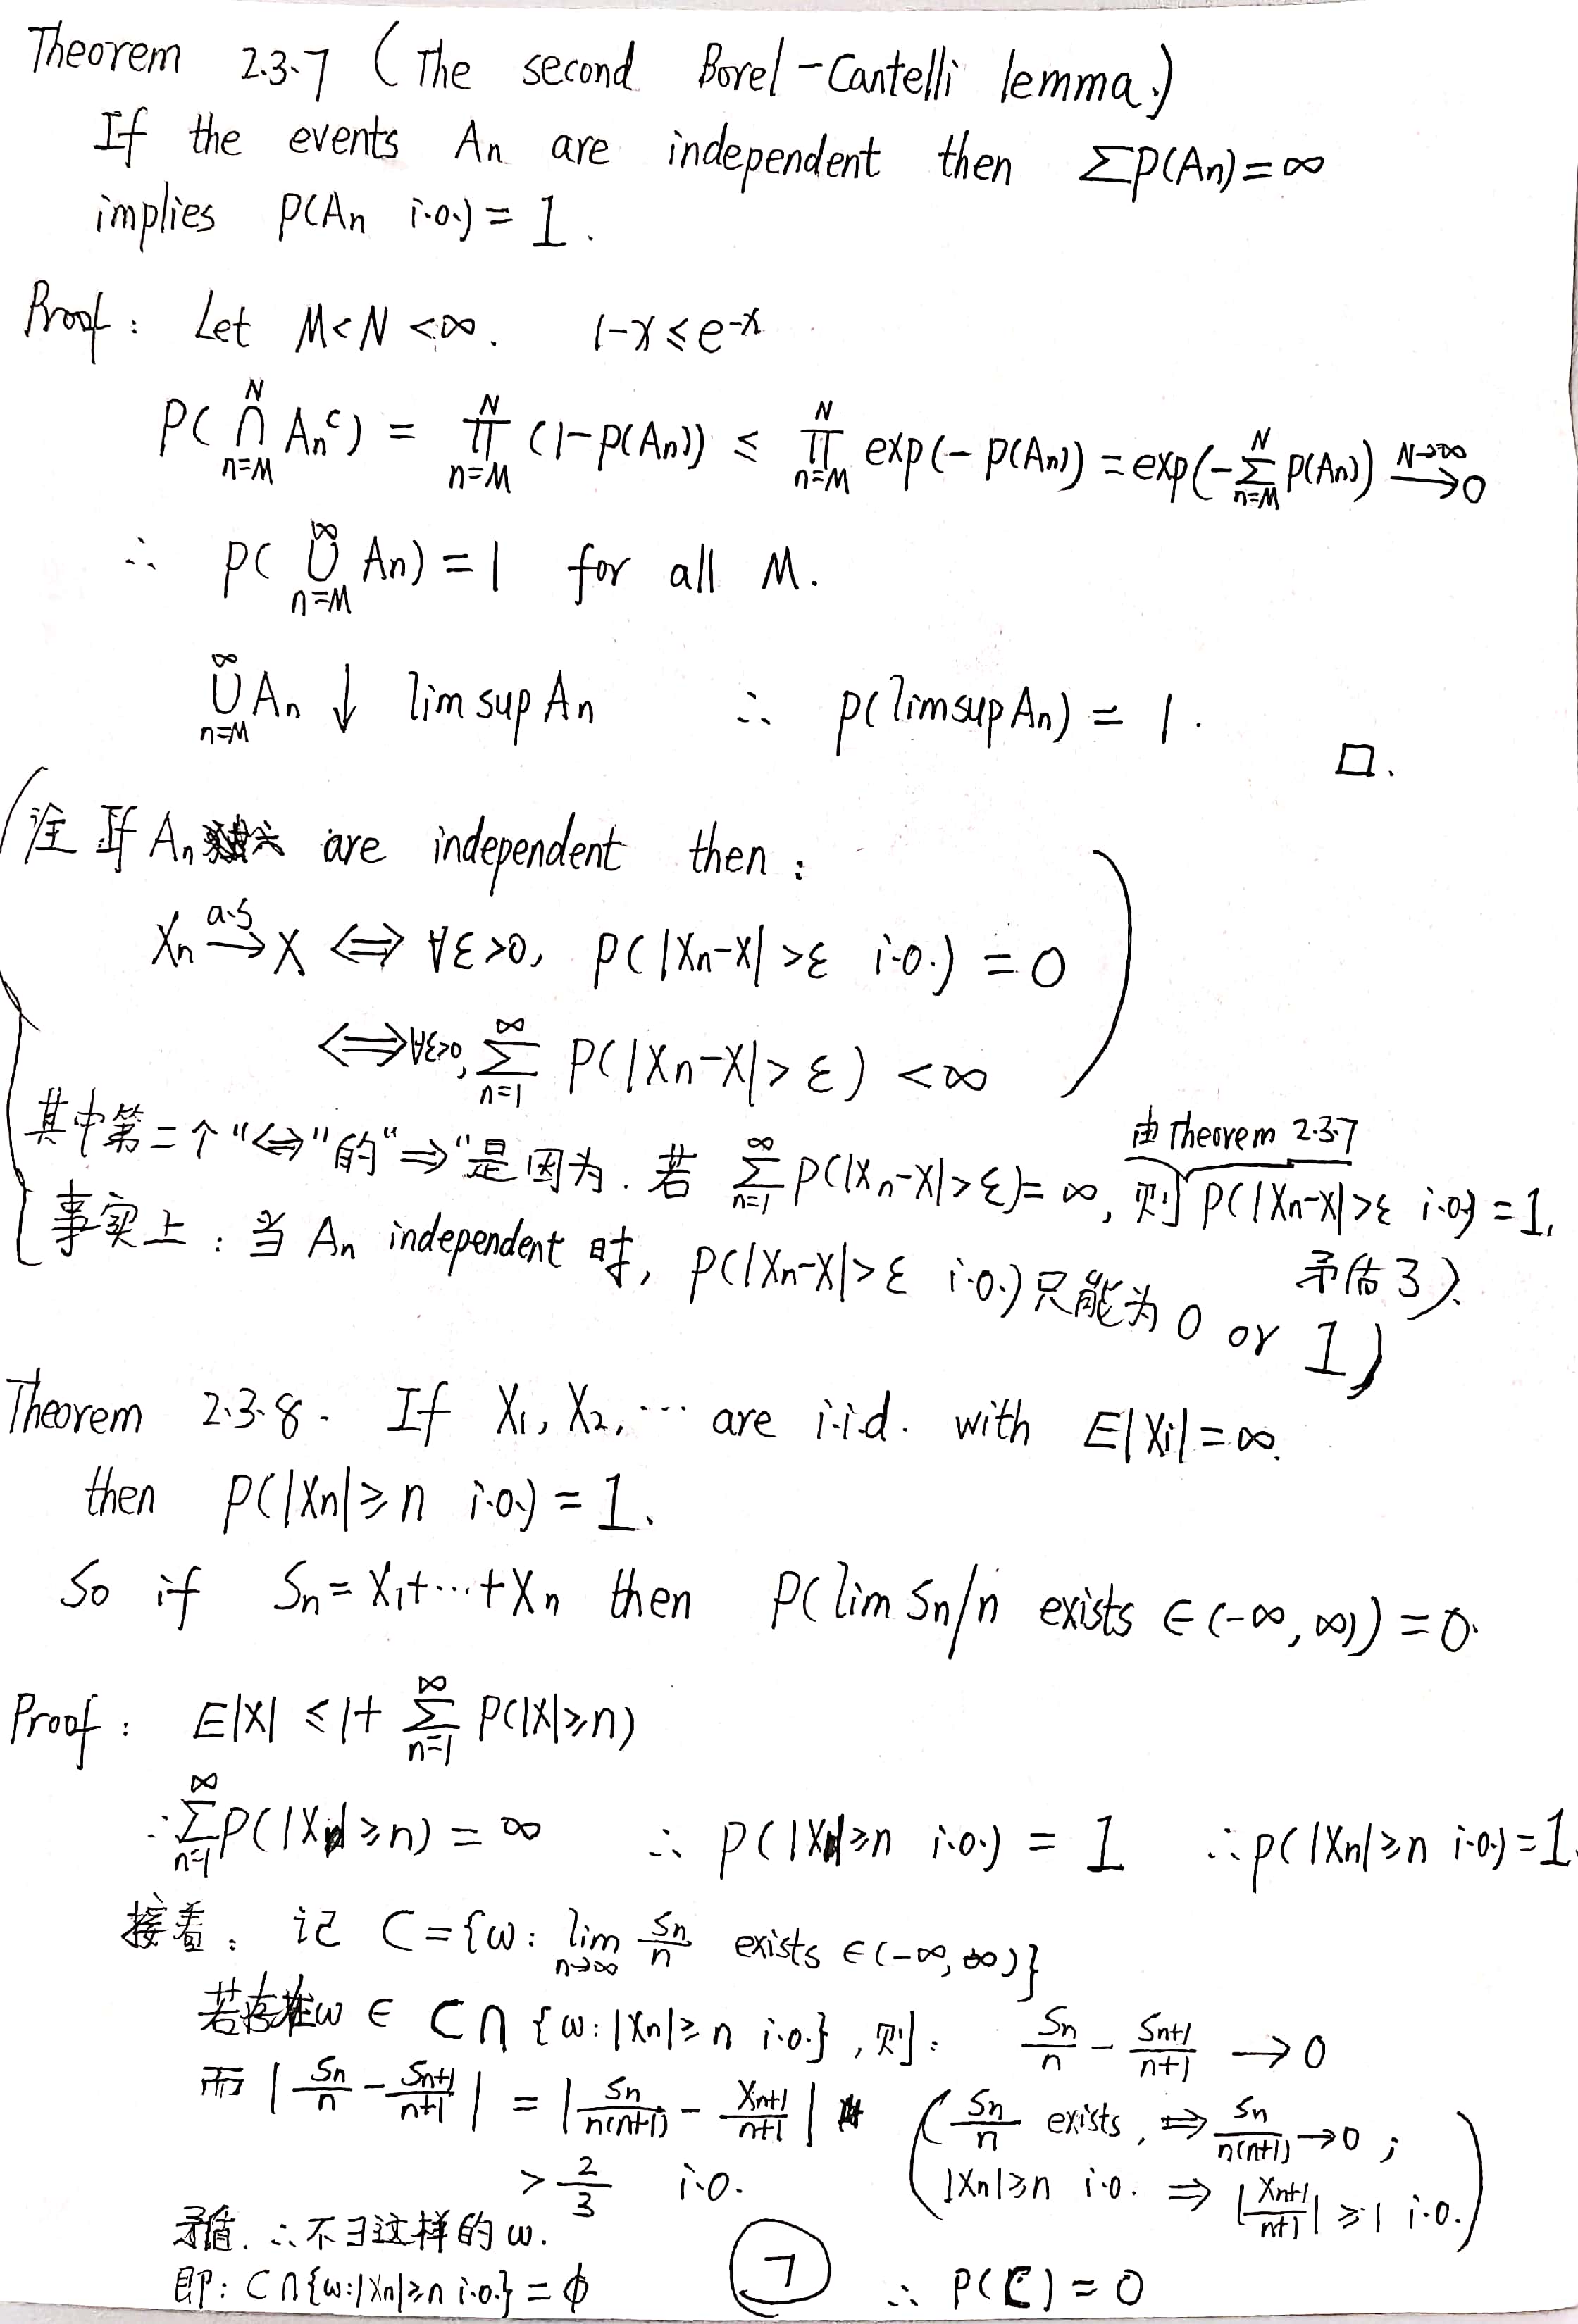 Theorem 2.3.7 (The second Borel-Cantelli lemma.)
If the events An are independent then ΣP(An)=∞
implies P(An i.o.) = 1.
Proof: Let M<N<∞. 1-x≤e^{-x}
P(∩_{n=M}^{N} An^c) = ∏_{n=M}^{N} (1-P(An)) ≤ ∏_{n=M}^{N} exp(-P(An)) = exp(-∑_{n=M}^{N} P(An)) →^{N→∞} 0
∴ P(∪_{n=M}^{∞} An) = 1 for all M.
∪_{n=M}^{∞} An ↓ lim sup An ∴ P(limsup An) = 1. □.
(注 If An are independent then:
Xn →^{a.s} X ⟺ ∀ε>0, P(|Xn-X|>ε i.o.) = 0
⟺ ∀ε>0, ∑_{n=1}^{∞} P(|Xn-X|>ε) <∞ )
由Theorem 2.3.7
其中第二个"⟺"的"⇒"是因为.若 ∑_{n=1}^{∞} P(|Xn-X|>ε)=∞, 则 P(|Xn-X|>ε i.o.)=1.
矛盾了).
事实上: 当 An independent 时, P(|Xn-X|>ε i.o.)只能为 0 or 1)
Theorem 2.3.8. If X1, X2, ··· are i.i.d. with E|Xi|=∞.
then P(|Xn|≥n i.o.) = 1.
So if Sn = X1+···+Xn then P(lim Sn/n exists ∈(-∞,∞)) = 0.
Proof: E|X| ≤ 1+ ∑_{n=1}^{∞} P(|X|≥n)
∴ ∑_{n=1}^{∞} P(|X|≥n) = ∞ ∴ P(|X|≥n i.o.) = 1 ∴ P(|Xn|≥n i.o.)=1.
接着: 记 C={ω: lim_{n→∞} Sn/n exists ∈(-∞,∞)}
若存在ω ∈ C∩{ω:|Xn|≥n i.o.}, 则: Sn/n - Sn+1/n+1 → 0
而 |Sn/n - Sn+1/n+1| = |Sn/n(n+1) - Xn+1/n+1| (Sn/n exists, ⇒ Sn/n(n+1) →0;
> 2/3 i.o. |Xn|≥n i.o. ⇒ |Xn+1/n+1| ≥1 i.o.)
矛盾. ∴不∃这样的ω.
即: C∩{ω:|Xn|≥n i.o.} = ϕ ∴ P(C) = 0
7